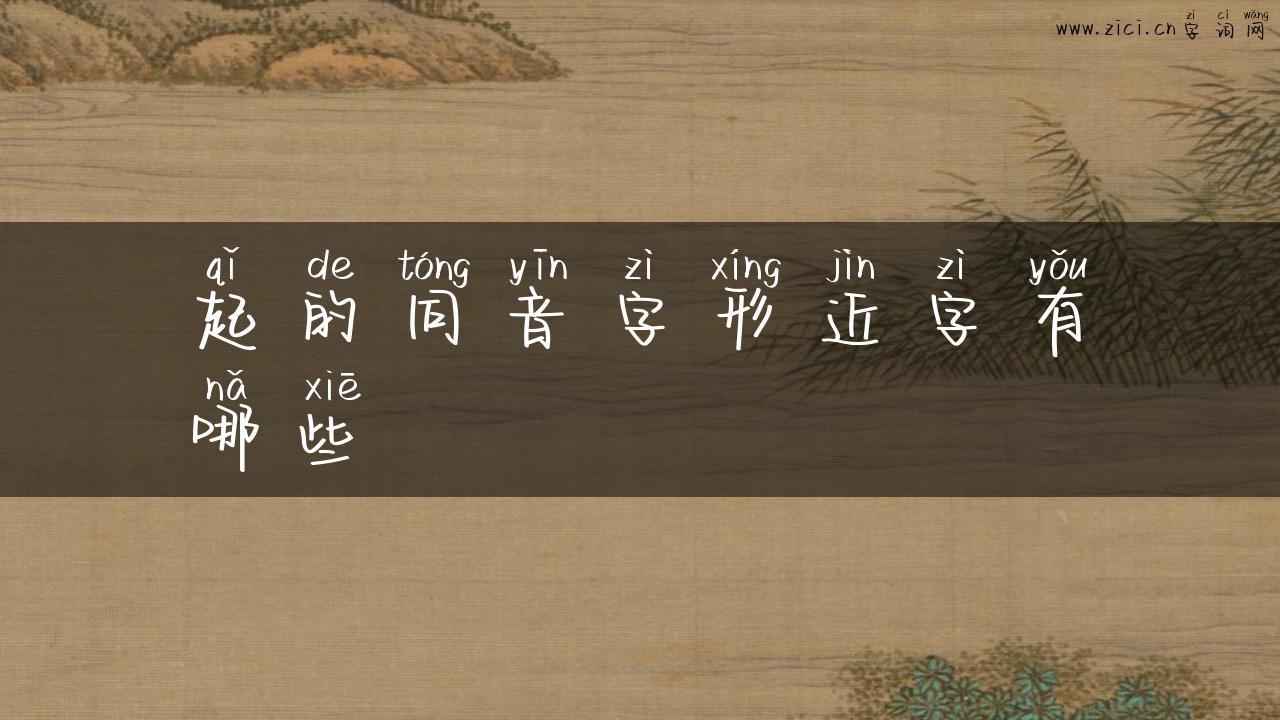 zì cí wǎng
www.zici.cn 字 词 网
qǐ de tóng yīn zì xíng jìn zì yǒu
起 的 同 音 字 形 近 字 有
nǎ xiē
哪 些